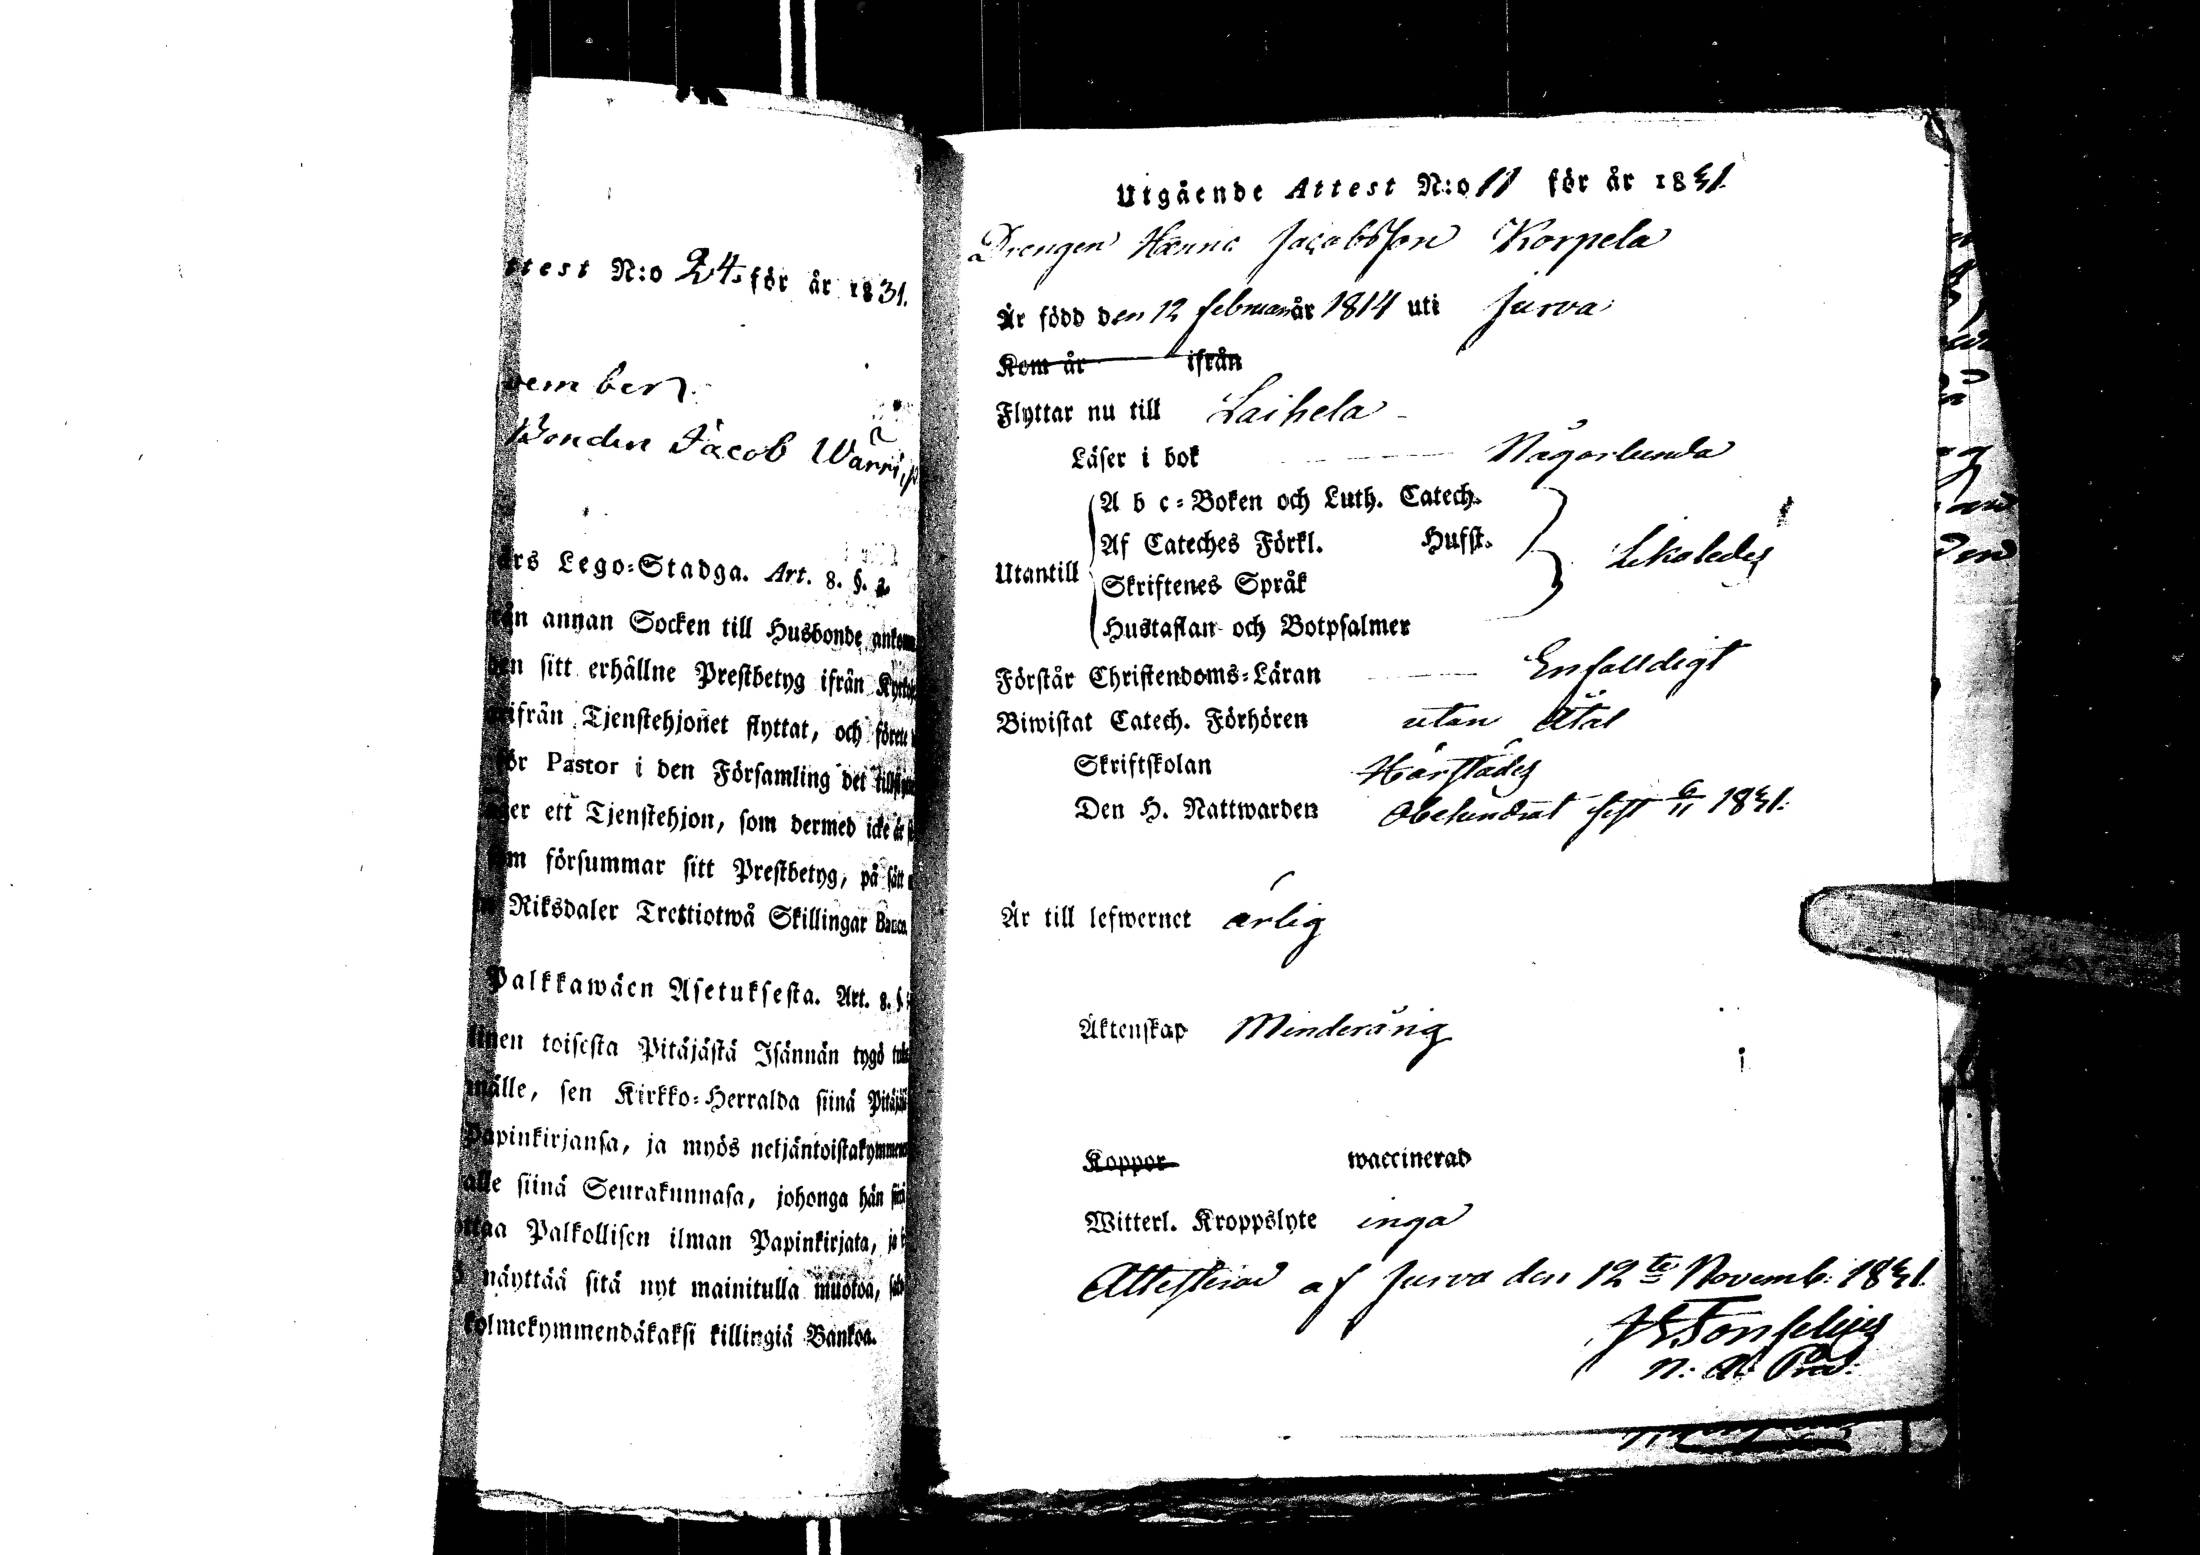 ttest N:o 24 för år 1831.
vember
Bonden Jacob Warri
års Lego-Stadga. Art. 8. §. 2.
rån annan Socken till Husbonde ankom
den sitt erhållne Prestbetyg ifrån Kyrko
arifrån Tjenstehjonet flyttat, och förete
för Pastor i den Församling det till
ager ett Tjenstehjon, som dermed icke är
som försummar sitt Prestbetyg, på sätt
Riksdaler Trettiotwå Skillingar Banco.
Palkkawäen Asetuksesta. Art. 8. §.
linen toisesta Pitäjästä Isännän tygö tule
mälle, sen Kirkko-Herralda siinä Pitäjä
Papinkirjansa, ja myös neljäntoistakymmenen
alle siinä Seurakunnasa, johonga hän
ottaa Palkollisen ilman Papinkirjata, ja
näyttää sitä nyt mainitulla muotoa,
kolmekymmendäkaksi killingiä Bankoa.
Utgående Attest N:o 11 för år 1831.
Drengen Hannu Jacobsson Korpela
Är född den 12 februari år 1814 uti Jurva
Kom år ifrån
Flyttar nu till Laihela
Läser i bok Någorlunda
A b c-Boken och Luth. Catech.
Af Cateches Förkl. Hufst.
Utantill
likaledes
Skriftenes Språk
Hustaflan och Botpsalmer
Förstår Christendoms-Läran Enfalldigt
Biwistat Catech. Förhören utan Åtal
Skriftskolan Härstädes
Den H. Nattwarden Obehindrat sist 6/11 1831.
Är till lefwernet ärlig
Äktenskap Minderårig
Koppor waccinerad
Witterl. Kroppslyte inga
Attesterar af Jurva den 12te Novemb: 1831.